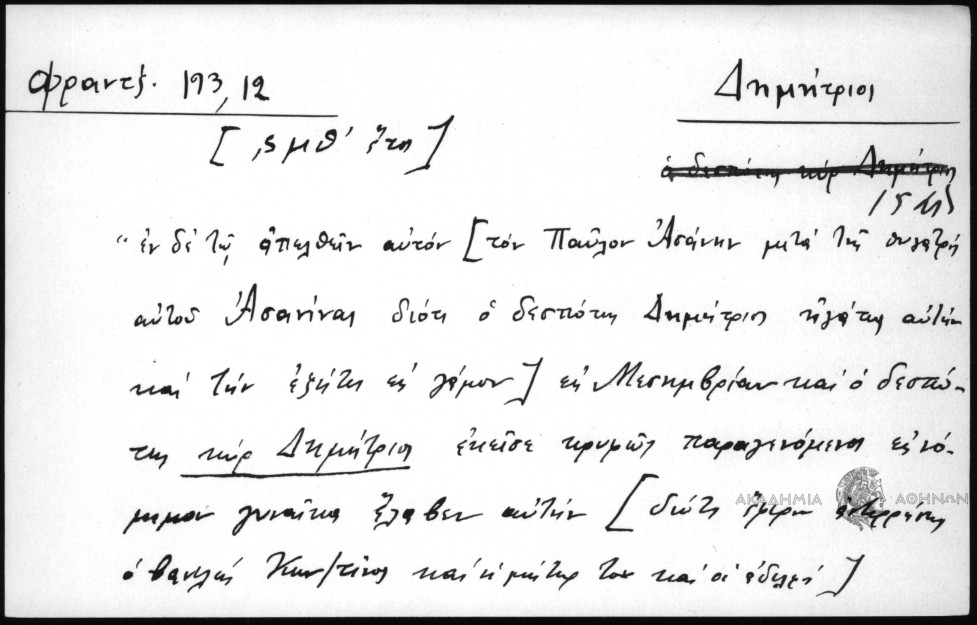 Φραντζ. 193, 12
Δημήτριος
[͵ϛμθ' ἔτη]
ὁ δεσπότης κύρ Δημήτριος
"ἐν δέ τῷ ἀπελθεῖν αὐτόν [τόν Παῦλον Ἀσάνην μετά τῆς θυγατρός
αὐτοῦ Ἀσανίνας διότι ὁ δεσπότης Δημήτριος αὐτήν
καί τήν ἐζήτει εἰς γάμον] εἰς Μεσημβρίαν καί ὁ δεσπό-
της κύρ Δημήτριος ἐκεῖσε κρυφῶς παραγενόμενος εἰς νό-
μιμον γυναῖκα ἔλαβεν αὐτήν [διότι ἔφερον ἀντιρρήσεις
ὁ βασιλεύς Κων/τῖνος καί ἡ μήτηρ του καί οἱ ἀδελφοί]
ΑΚΑΔΗΜΙΑ ΑΘΗΝΩΝ